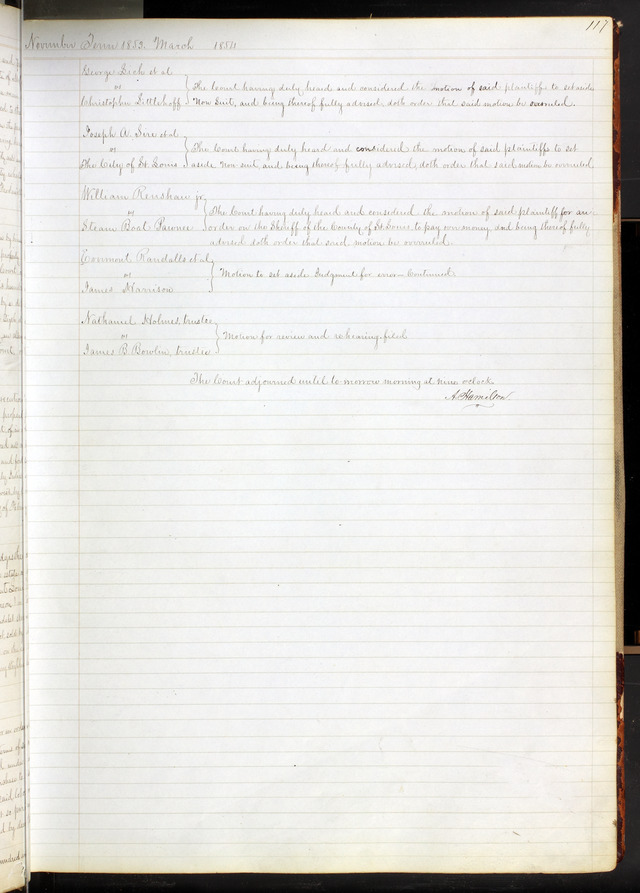 117
November Term 1853. March 1854
George Sick et al
vs
Christopher Littlehoff
The Court having duly heard and considered the motion of said plaintiff to set aside
Non Suit, and being thereof fully advised doth order that said motion be overruled.
Joseph A. Sire et al
vs
The City of St. Louis
The Court having duly heard and considered the motion of said plaintiffs to set
aside Non suit, and being thereof fully advised, doth order that said motion be overruled
William Renshaw jr
vs
Steam Boat Pawnee
The Court having duly heard and considered the motion of said plaintiff for an
order on the Sheriff of the County of St Louis to pay over money and being thereof fully
advised doth order that said motion be overruled.
Randalls et al
vs
James Harrison
Motion to set aside Judgment for error - Continued.
Nathaniel Holmes, trustee
vs
James B. Bowlin, trustee
Motion for review and rehearing filed
The Court adjourned until to-morrow morning at nine o'clock
A. Hamilton